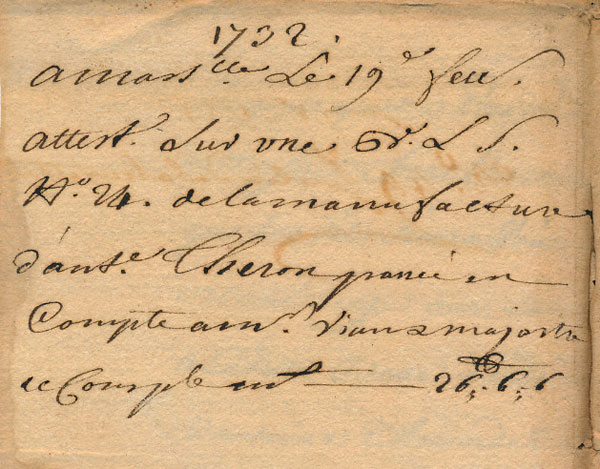 1732.
a mars.lle Le 19e feu.
attest.n Sur une Bd. L S.
No. 24. de la manufacture
d'ant.e Cheron passée en
Compte a mr. Vians major
ce Compl
26.6.6